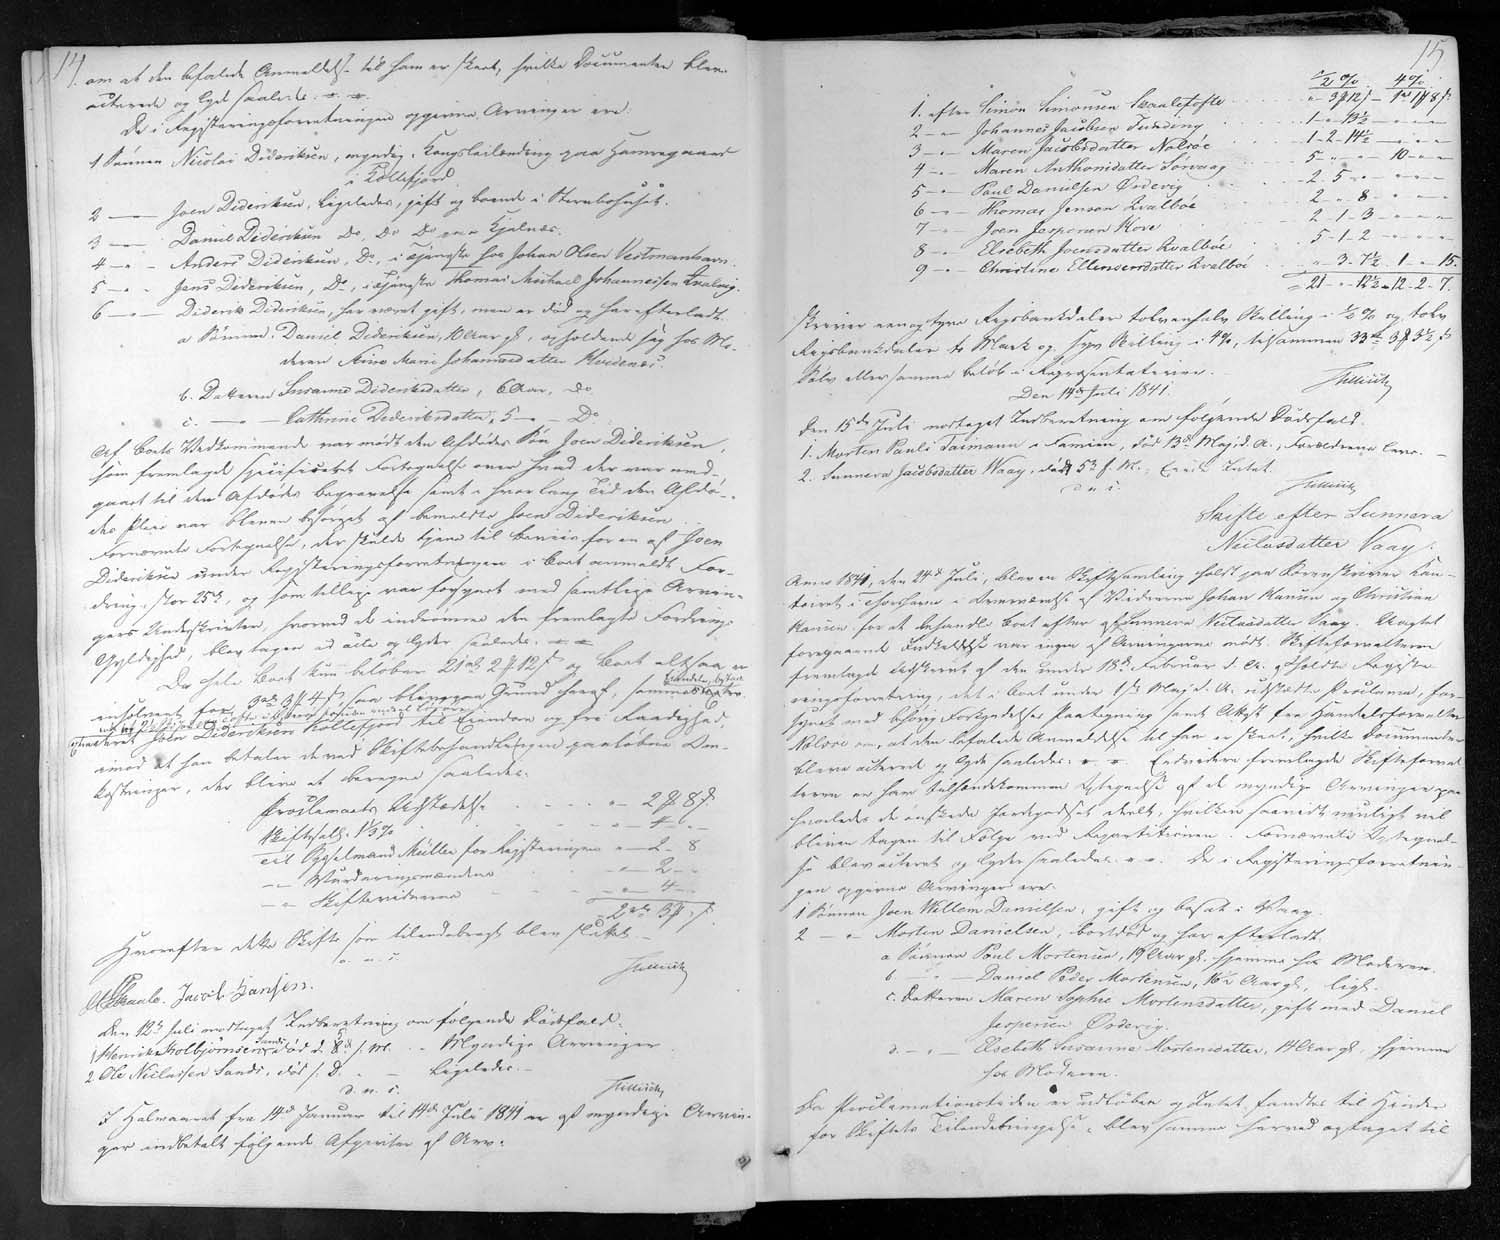 14.
om at den befalede Anmeldelse til ham er skeet, hvilke Documenter blev
acterede og lyde saaledes.
De i Registeringsforretningen opgivne Arvinger ere:
1 Sønnen Nicolai Dideriksen, myndig, Kongsleilænding paa Hamregaard
i Kollefjord.
2 — Joen Dideriksen, ligeledes, gift og boende i Sternbohuset.
3 — Daniel Dideriksen Do, Do Do paa Kjalnæs.
4 — " - Anders Dideriksen, Do, i Tjeneste hos Johan Olsen Vestmanhavn.
5 — " - Jens Dideriksen, Do, i Tjeneste Thomas Michael Johannesen Qvalvig.
6 — " — Diderik Dideriksen, har været gift, men er død og har efterladt
a Sønnen Daniel Dideriksen, 10 Aar gl, opholdende sig hos Mo-
deren Anne Marie Johannesdatter Hvidenæs.
b. Datteren Susanne Dideriksdatter, 6 Aar, Do
c. — " — Cathrine Dideriksdatter, 5 — " — Do
Af Boets Vedkommende var mødt den Afdødes Søn Joen Dideriksen,
som fremlagde specificeret Fortegnelse over hvad der var med-
gaaet til den Afdødes Begravelse samt i hvor lang Tid den Afdø-
des Pleie var bleven besørget af bemeldte Joen Dideriksen
Fornævnte Fortegnelse, der skulde tjene til Beviis for en af Joen
Dideriksen under Registeringsforretningen i Boet anmeldt For-
dring, stor 25 rd, og som tillige var forsynet med samtlige Arvin-
gers Underskrifter, hvorved de indrømme den fremlagte Fordrings
Gyldighed, blev tagen ad acta og lyder saaledes.
Da hele Boet kun beløber 21 rd 2 # 12 s og Boet altsaa er
insolvent for 3 rd 3 # 4 s, saa blev paa Grund heraf,
Joen Dideriksen Kollefjord til Eiendom og fri Raadighed,
imod at han betaler de ved Skiftebehandlingen paaløbne Om-
kostninger, der bleve at beregne saaledes:
Proclamaets Udstædelse . . . . " — 2 # 8 s
Skiftesalt. 1⅓ % . . . . " — 4 — "
Til Sysselmand Müller for Registeringen " — 2 - 8
— " — Vurderingsmændene . . " — 2 — "
— " — Skiftevidnerne . . " — 4 — "
2 rd 3 # " s.
Hvorefter dette Skifte som tilendebragt blev sluttet. —
D. u. s.
Tillisch
Skaale. Jacob Hansen.
Den 12te Juli modtaget Indberetning om følgende Dødsfald:
1 Henrik Kolbjørnsen Sands, død d. 8de f. M. . . Myndige Arvinger
2 Ole Niclassen Sands, død s. D. . — Ligeledes. —
D. u. s.
Tillisch
I Halvaaret fra 14de Januar til 14de Juli 1841 er af myndige Arvin-
ger indbetalt følgende Afgifter af Arv:
15
½ % 4 %
1. efter Simon Simonsen Skaaletofte . . . " — 3 # 12 s — 1 rd 1 # 8 s
2 — " — Johannes Jacobsen Funding . . . 1 - " - 13½ — " — " — "
3 — " — Maren Jacobsdatter Nolsöe . . . 1 - 2 - 14½ — " — " — "
4 — " — Maren Anthonisdatter Sørvaag . . . 5 — " — " — 10 — " — "
5 — " — Paul Danielsen Ördevig . . . 2 - 5 — " — " — " — "
6 — " — Thomas Jensen Qvalböe . . . 2 — " — 8 — " — " — "
7 — " — Joen Jespersen Hove . . . 2 - 1 - 3 — " — " — "
8 — " — Elsebeth Joensdatter Qvalböe . . . 5 - 1 - 2 — " — " — "
9 — " — Christine Ellingsensdatter Qvalböe . . . " 3 - 7½ . 1 — " 15.
= 21 — " — 12½ = 12 - 2 - 7.
skriver een og tyve Rigsbankdaler tolvenhalv Skilling i ½ % og tolv
Rigsbankdaler to Mark og syv Skilling i 4 %, tilsammen 33 rd 3 # 3½ s
Sølv eller samme Beløb i Repræsentativer.
Den 14de Juli 1841.
Tillisch
Den 15de Juli modtaget Indberetning om følgende Dødsfald:
1. Morten Pauli Taimann i Famien, død 13de Maj d. A., Forældrene leve. —
2. Sunnera Jacobsdatter Waag, død 5te f. M.; Eiede Intet.
D. u. s.
Tillisch
Skifte efter Sunnera
Niclasdatter Vaag.
Anno 1841, den 24de Juli, blev en Skiftesamling holdt paa Sorenskriver Con-
toiret i Thorshavn i Overværelse af Vidnerne Johan Hansen og Christian
Hansen for at behandle Boet efter afg. Sunnera Niclasdatter Vaag. Uagtet
foregaaende Indkaldelse var ingen af Arvingerne mødt. Skifteforvalteren
fremlagde Udskrivt af den under 18de Februar d. A. afholdte Registe-
ringsforretning, det i Boet under 1ste Maj d. A. udstædte Proclama, for-
synet med behørig Forkyndelses Paategning samt Attest fra Handelsforvalter
Nolsöe om, at den befalede Anmeldelse til ham er skeet; hvilke Documenter
bleve acterede og lyde saaledes: Endvidere fremlagde Skifteforval-
teren en ham tilhændekommen Optegnelse af de myndige Arvinger paa
hvorledes de ønskede Jordegodset deelt, hvilken saavidt muligt vil
blive tagen til Følge ved Repartitionen. Fornævnte Optegnel-
se blev acteret og lyder saaledes. De i Registeringsforretnin-
gen opgivne Arvinger ere:
1 Sønnen Joen Willem Danielsen, gift og bosat i Vaag.
2 — " Morten Danielsen, bortdød og har efterladt
a Sønnen Poul Mortensen, 19 Aar gl. hjemme hos Moderen.
b — " — Daniel Peder Mortensen, 16½ Aar gl, lige.
c. Datteren Maren Sophie Mortensdatter, gift med Daniel
Jespersen Ördevig.
d. — " — Elsebeth Susanne Mortensdatter, 14 Aar gl, hjemme
hos Moderen.
Da Proclamationstiden er udløben og Intet fandtes til Hinder
for Skiftets Tilendebringelse, blev samme herved optaget til